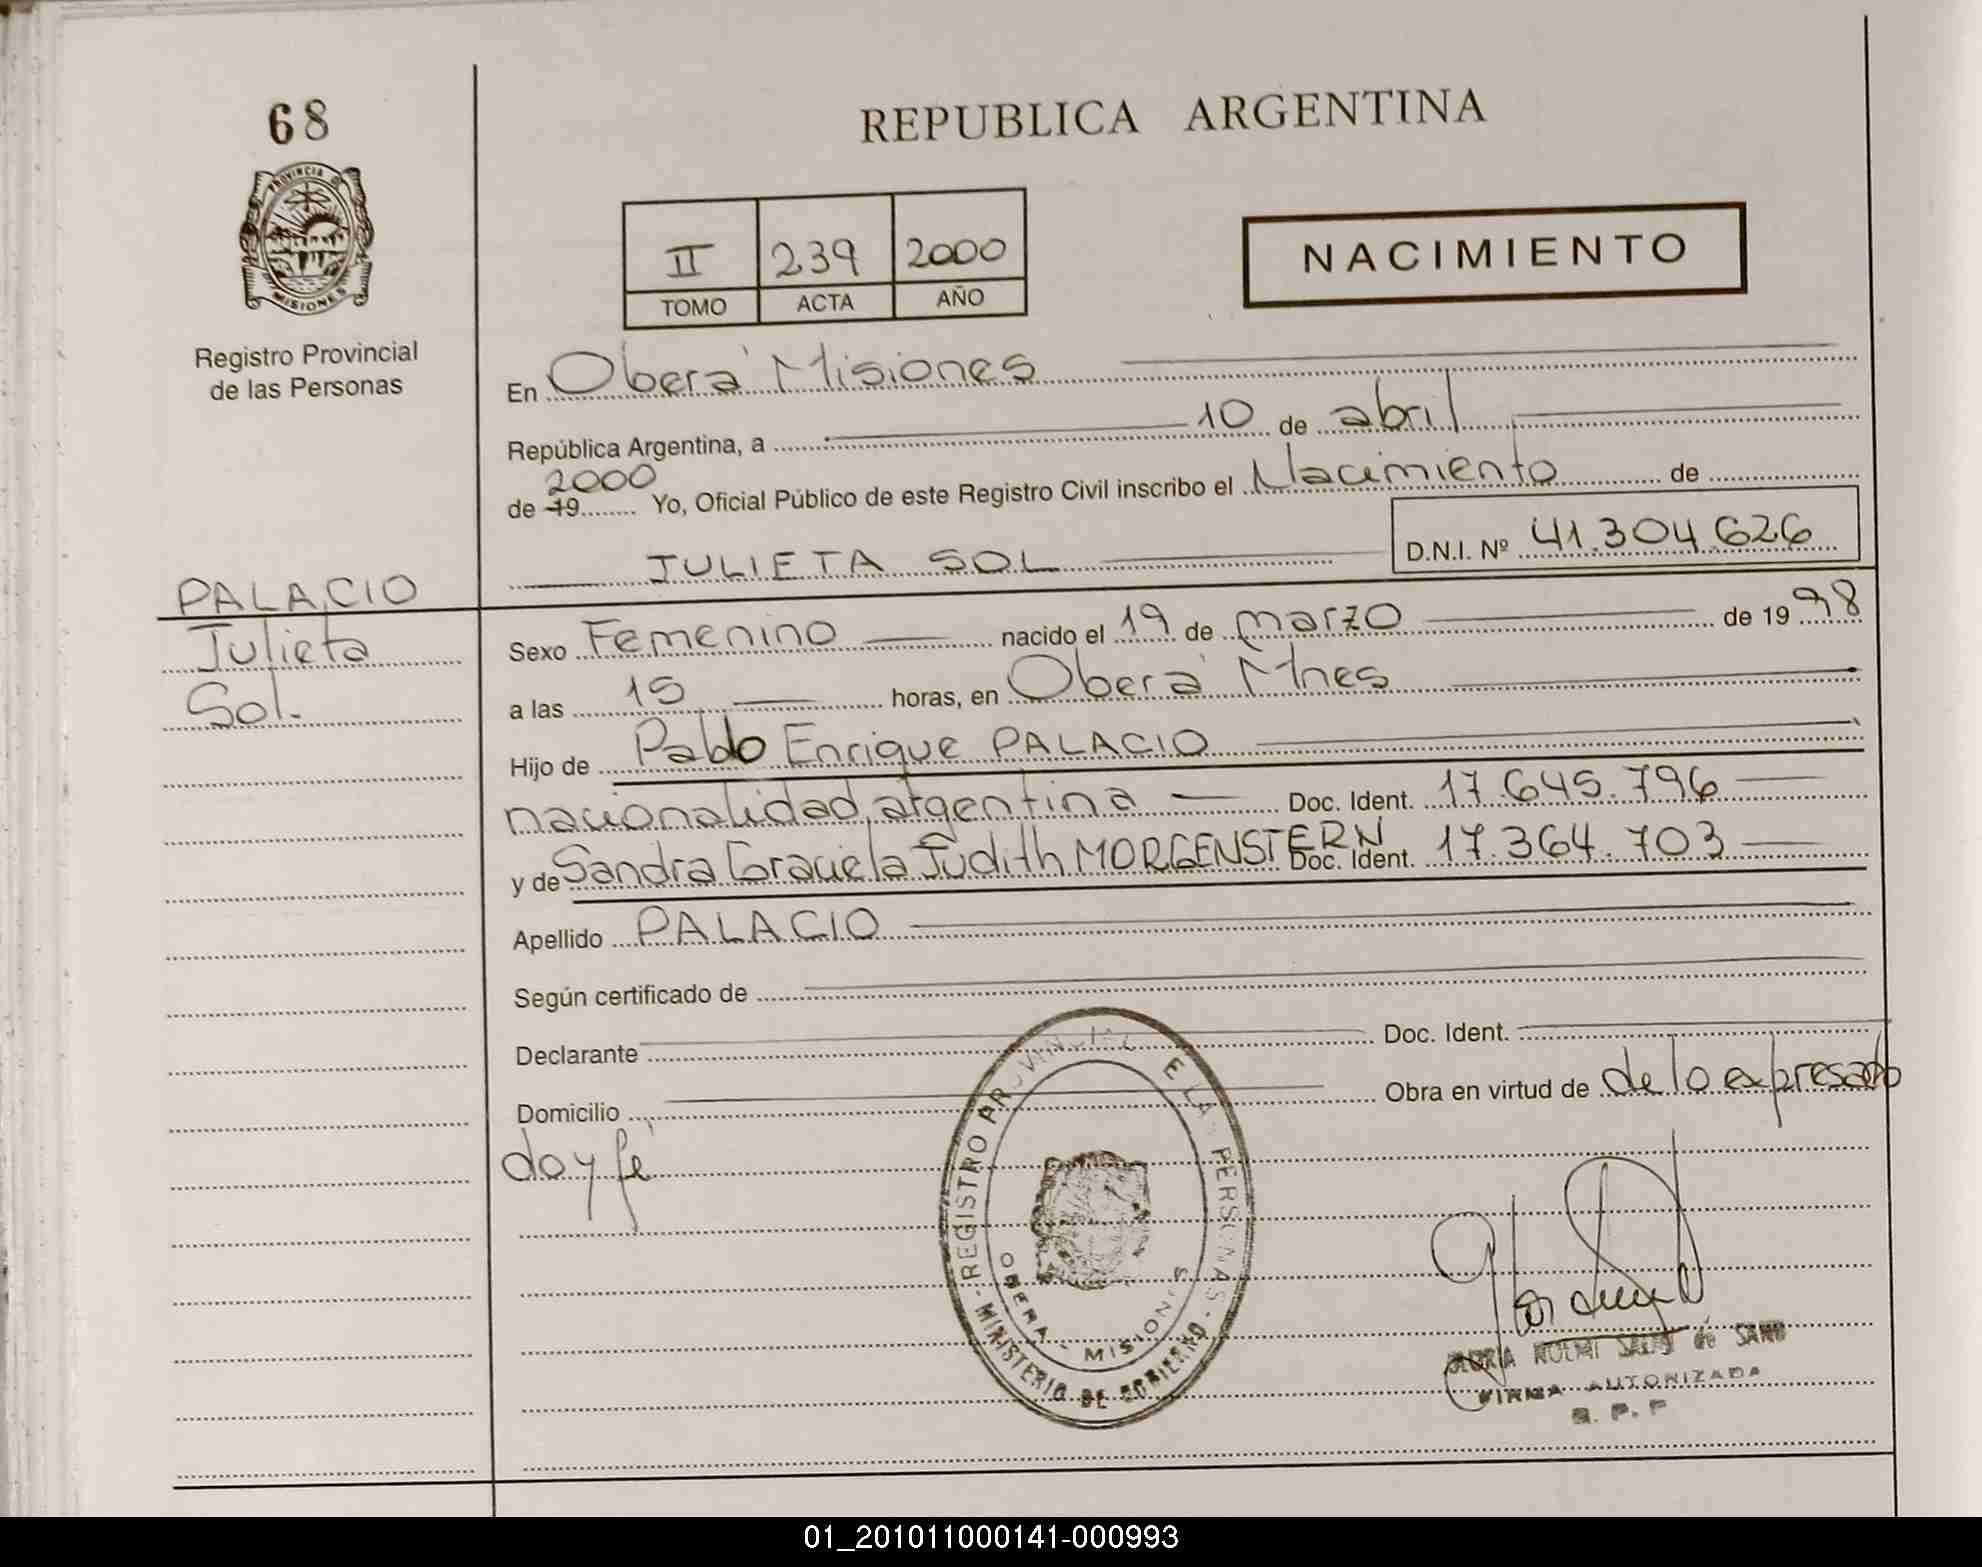 68
REPUBLICA ARGENTINA
PROVINCIA DE
MISIONES
II 239 2000
TOMO ACTA AÑO
NACIMIENTO
Registro Provincial
de las Personas
En Oberá Misiones
República Argentina, a 10 de abril
2000
de 19 Yo, Oficial Público de este Registro Civil inscribo el Nacimiento de
JULIETA SOL D.N.I. Nº 41.304.626
PALACIO
Julieta
Sol.
Sexo Femenino nacido el 19 de marzo de 1998
a las 15 horas, en Oberá Mnes
Hijo de Pablo Enrique PALACIO
nacionalidad argentina Doc. Ident. 17.645.796
y de Sandra Graciela Judith MORGENSTERN Doc. Ident. 17.364.703
Apellido PALACIO
Según certificado de
Declarante Doc. Ident.
Domicilio Obra en virtud de de lo expresado
doy fé
REGISTRO PROVINCIAL DE LAS PERSONAS
OBERA - MISIONES
MINISTERIO DE GOBIERNO
GLORIA NOEMI de
FIRMA AUTORIZADA
R. P. P
01_201011000141-000993